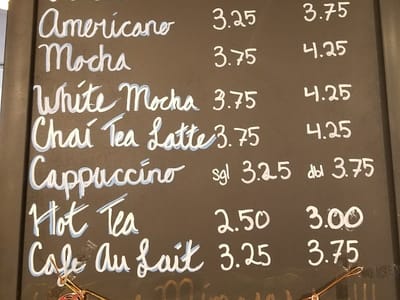 Americano 3.25 3.75
Mocha 3.75 4.25
White Mocha 3.75 4.25
Chai Tea Latte 3.75 4.25
Cappuccino sgl 3.25 dbl 3.75
Hot Tea 2.50 3.00
Cafe Au Lait 3.25 3.75